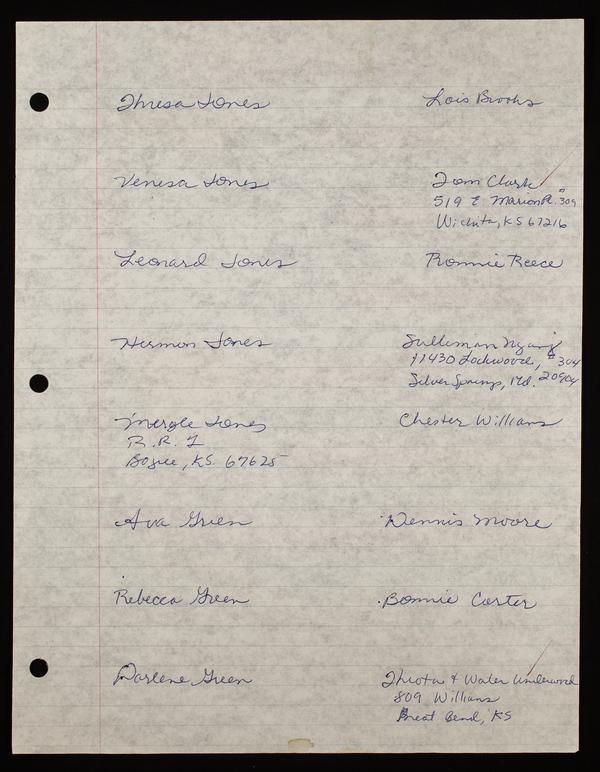 Thresa Jones
Venesa Jones
Leonard Jones
Hermon Jones
Mergle Jones
R.R. 1
Bogue, KS. 67625
Ava Green
Rebecca Green
Darlene Green
Lois Brooks
Tom Clark
519 E Marion Rd. # 309
Wichita, KS 67216
Ronnie Reece
Sulliman Nyang
11430 Lockwood, # 304
Silver Springs, Md. 20904
Chester Williams
Dennis Moore
Bonnie Carter
Thiota & Water Underwood
809 Williams
Great Bend, KS